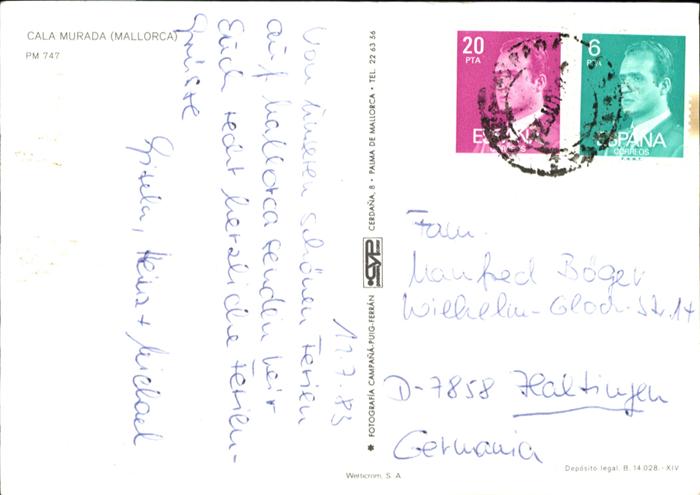 CALA MURADA (MALLORCA)
PM 747
12.7.83
Von unseren schönen Ferien
auf Mallorca senden wir
Euch recht herzliche Ferien-
grüsse
Gisela, Heinz + Michael
* FOTOGRAFÍA CAMPAÑÁ-PUIG-FERRÁN
CYP
CERDAÑA, 8 • PALMA DE MALLORCA • TEL. 22 63 56
20
PTA
ESPAÑA
CORREOS
6
PTA
ESPAÑA
CORREOS
F.N.M.T.
Fam.
Manfred Böger
Wilhelm-Glock-Str. 14
D-7858 Haltingen
Germania
Werticrom, S. A.
Depósito legal. B. 14.028.-XIV